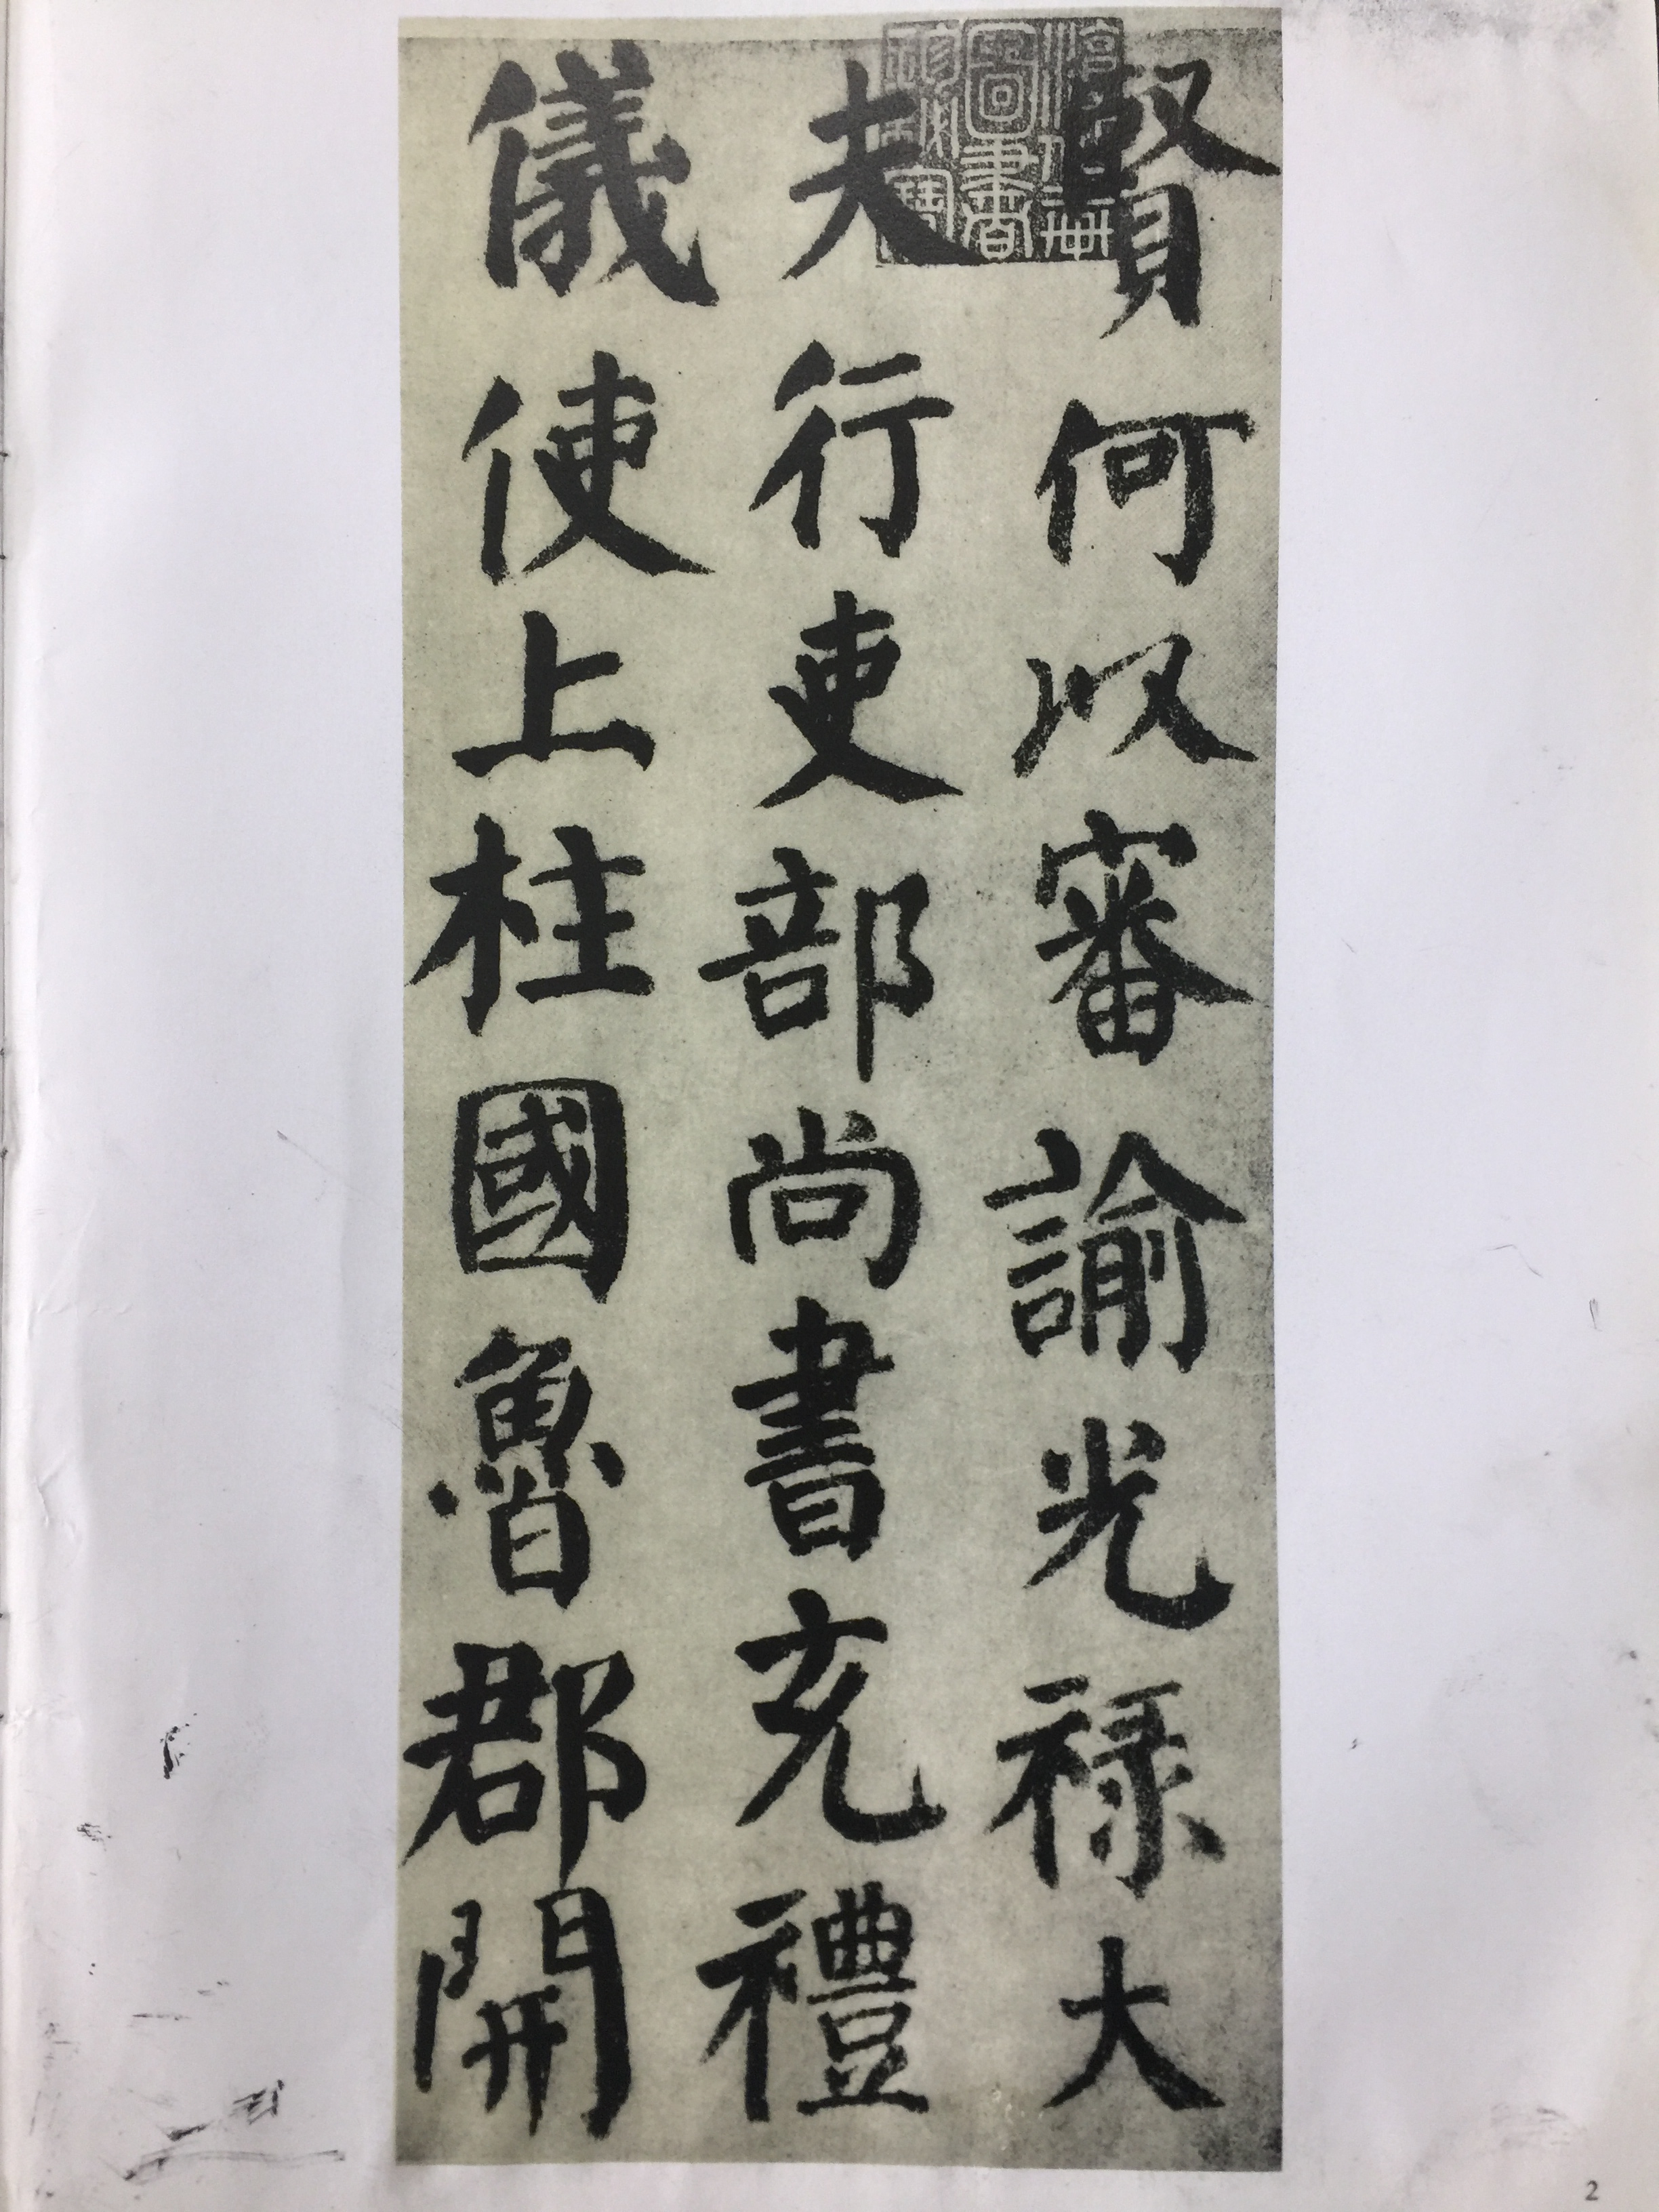 賢何以審諭光禄大
夫行吏部尚書充禮
儀使上柱國魯郡開
2